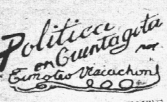 Politica
en Cuentagota
Timoteo Vizcachon